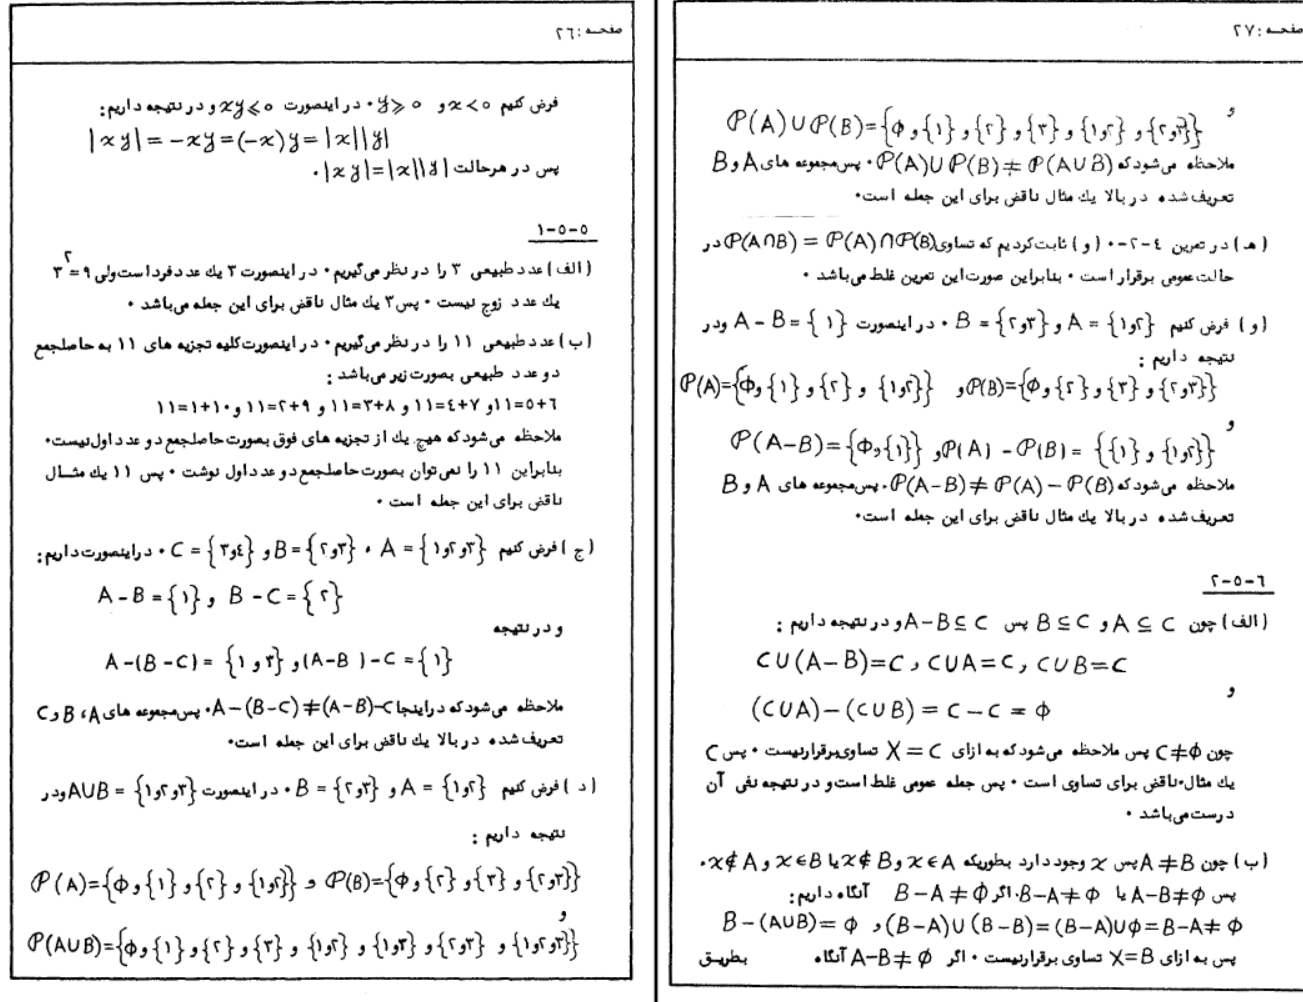 صفحه: ۲٦
فرض کنیم x<0 و y⩾0 . در اینصورت xy⩽0 و در نتیجه داریم:
|xy|=-xy=(-x)y=|x||y|
پس در هرحالت |xy|=|x||y| .
۱-٥-٥
(الف) عدد طبیعی ۳ را در نظر می‌گیریم . در اینصورت ۳ یك عدد فرد است ولی ۳²=۹
یك عدد زوج نیست . پس ۳ یك مثال ناقض برای این جمله می‌باشد .
(ب) عدد طبیعی ۱۱ را در نظر می‌گیریم . در اینصورت کلیه تجزیه های ۱۱ به حاصلجمع
دو عدد طبیعی بصورت زیر می‌باشد :
۱۱=۱+۱۰ و ۱۱=۲+۹ و ۱۱=۳+۸ و ۱۱=٤+۷ و ۱۱=٥+٦
ملاحظه می‌شود که هیچ یك از تجزیه های فوق بصورت حاصلجمع دو عدد اول نیست.
بنابراین ۱۱ را نمی‌توان بصورت حاصلجمع دو عدد اول نوشت . پس ۱۱ یك مثـال
ناقض برای این جمله است .
(ج) فرض کنیم A = {۱و۲و۳} ، B={۲و۳} و C = {۳و٤} . دراینصورت داریم:
A-B={۱} و B-C={۲}
و در نتیجه
A-(B-C) = {۱ و ۳} و (A-B)-C = {۱}
ملاحظه می‌شود که دراینجا A-(B-C)≠(A-B)-C. پس مجموعه های A، B و C
تعریف شده در بالا یك ناقض برای این جمله است.
(د) فرض کنیم A = {۱و۲} و B = {۲و۳} . در اینصورت A∪B = {۱و۲و۳} ودر
نتیجه داریم :
𝒫(A)={Φ و {۱} و {۲} و {۱و۲}} و 𝒫(B)={Φ و {۲} و {۳} و {۲و۳}}
و
𝒫(A∪B)={Φ و {۱} و {۲} و {۳} و {۱و۲} و {۱و۳} و {۲و۳} و {۱و۲و۳}}
صفحه: ۲۷
و
𝒫(A)∪𝒫(B)={Φ و {۱} و {۲} و {۳} و {۱و۲} و {۲و۳}}
ملاحظه می‌شود که 𝒫(A)∪𝒫(B)≠𝒫(A∪B) . پس مجموعه های A و B
تعریف شده در بالا یك مثال ناقض برای این جمله است.
(هـ) در تمرین ٤-۲-۰ (و) ثابت کردیم که تساوی 𝒫(A∩B) = 𝒫(A)∩𝒫(B) در
حالت عمومی برقرار است . بنابراین صورت این تمرین غلط می‌باشد .
(و) فرض کنیم A = {۱و۲} و B = {۲و۳} . در اینصورت A-B={۱} ودر
نتیجه داریم :
𝒫(A)={Φ و {۱} و {۲} و {۱و۲}} و 𝒫(B)={Φ و {۲} و {۳} و {۲و۳}}
و
𝒫(A-B)={Φ و {۱}} و 𝒫(A) - 𝒫(B) = {{۱} و {۱و۲}}
ملاحظه می‌شود که 𝒫(A-B) ≠ 𝒫(A) - 𝒫(B) . پس مجموعه های A و B
تعریف شده در بالا یك مثال ناقض برای این جمله است.
۲-٥-٦
(الف) چون A ⊆ C و B ⊆ C پس A-B⊆C و در نتیجه داریم :
C∪(A-B)=C و C∪A=C و C∪B=C
و
(C∪A)-(C∪B) = C-C = Φ
چون C≠Φ پس ملاحظه می‌شود که به ازای X=C تساوی برقرارنیست . پس C
یك مثال ناقض برای تساوی است . پس جمله عمومی غلط است و در نتیجه نفی آن
درست می‌باشد .
(ب) چون A≠B پس x وجود دارد بطوریکه x∈A و x∉B یا x∈B و x∉A .
پس A-B≠Φ یا B-A≠Φ . اگر B-A≠Φ آنگاه داریم:
B-(A∪B)= Φ و (B-A)∪(B-B)=(B-A)∪Φ=B-A≠Φ
پس به ازای X=B تساوی برقرارنیست . اگر A-B≠Φ آنگاه بطریـق